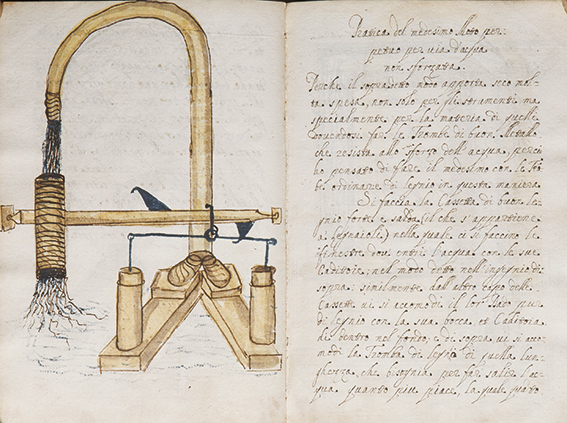 Pratica del medesimo Moto per-
petuo per via d'acqua
non sforzata.
Perche il sopradetto moto apporta seco mol-
ta spesa, non solo per gli stramenti ma
specialmente per la materia di quelli
dovendosi far le Trombe di buon Metallo
che resista allo sforzo dell'acqua perciò
ho pensato di fare il medesimo con le Tro-
be ordinarie di legnio in questa maniera
Si faccia la Cassetta di buon le-
gnio forte e salda, il che s'appartiene
ai legnaioli nella quale ci si faccino le
finestre dove entri l'acqua con le sue
Caditore, nel modo detto nell'ingegnio di
sopra; similmente dall'altro capo delle
Cassette vi si accomodi il
di legnio con la sua bocca et Caditora
di dentro nel fondo; e di sopra vi si acco-
modi la Tromba di legnio di quella lun-
ghezza, che bisognia per far salire l'ac-
qua quanto piu piace, la quale